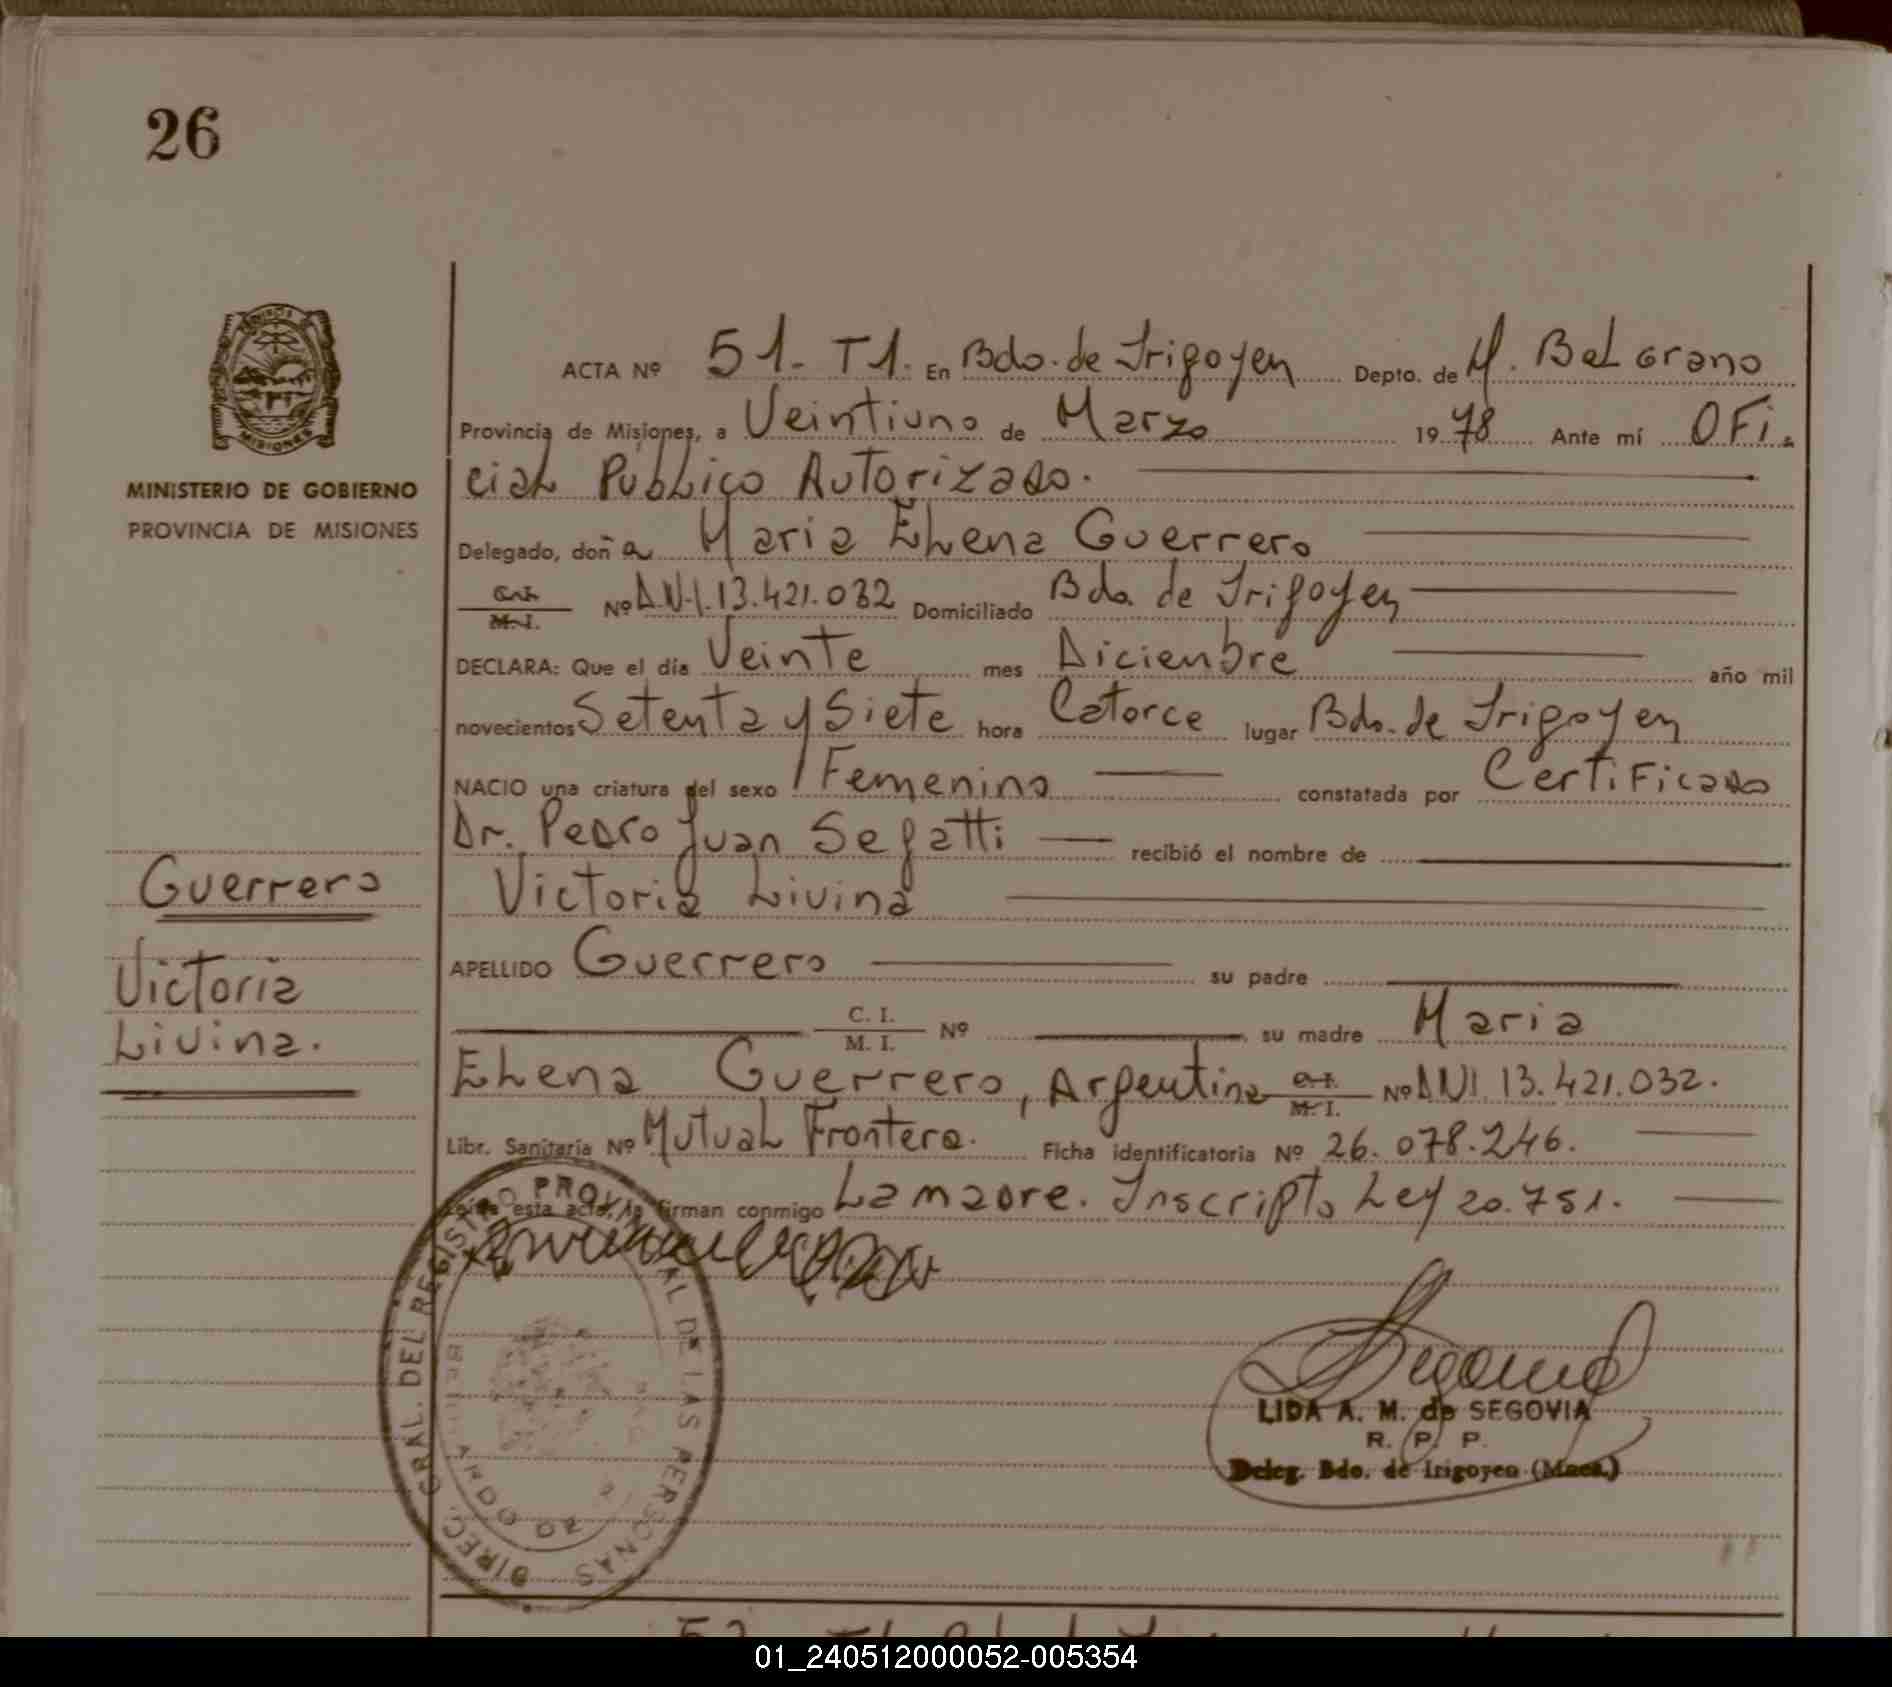 26
MISIONES
MINISTERIO DE GOBIERNO
PROVINCIA DE MISIONES
ACTA Nº 51 - T1. En Bdo. de Irigoyen Depto. de M. Belgrano
Provincia de Misiones, a Veintiuno de Marzo 1978 Ante mí Ofi-
cial Público Autorizado.
Delegado, doña Maria Elena Guerrero
C.I. M.I. Nº D.N.I. 13.421.032 Domiciliado Bdo. de Irigoyen
DECLARA: Que el día Veinte mes Diciembre año mil
novecientos Setenta y Siete hora Catorce lugar Bdo. de Irigoyen
NACIO una criatura del sexo Femenino constatada por Certificado
Dr. Pedro Juan Segatti recibió el nombre de
Victoria Livina
APELLIDO Guerrero su padre
C. I. M. I. Nº su madre Maria
Elena Guerrero, Argentina C.I. M.I. Nº DNI. 13.421.032.
Libr. Sanitaria Nº Mutual Frontera. Ficha identificatoria Nº 26.078.246.
Leída esta acta, la firman conmigo La madre. Inscripto Ley 20.751.
Guerrero
Victoria
Livina.
DIREC. GRAL. DEL REGISTRO PROVINCIAL DE LAS PERSONAS
LIDA A. M. de SEGOVIA
R. P. P.
Deleg. Bdo. de Irigoyen (Mnes.)
01_240512000052-005354